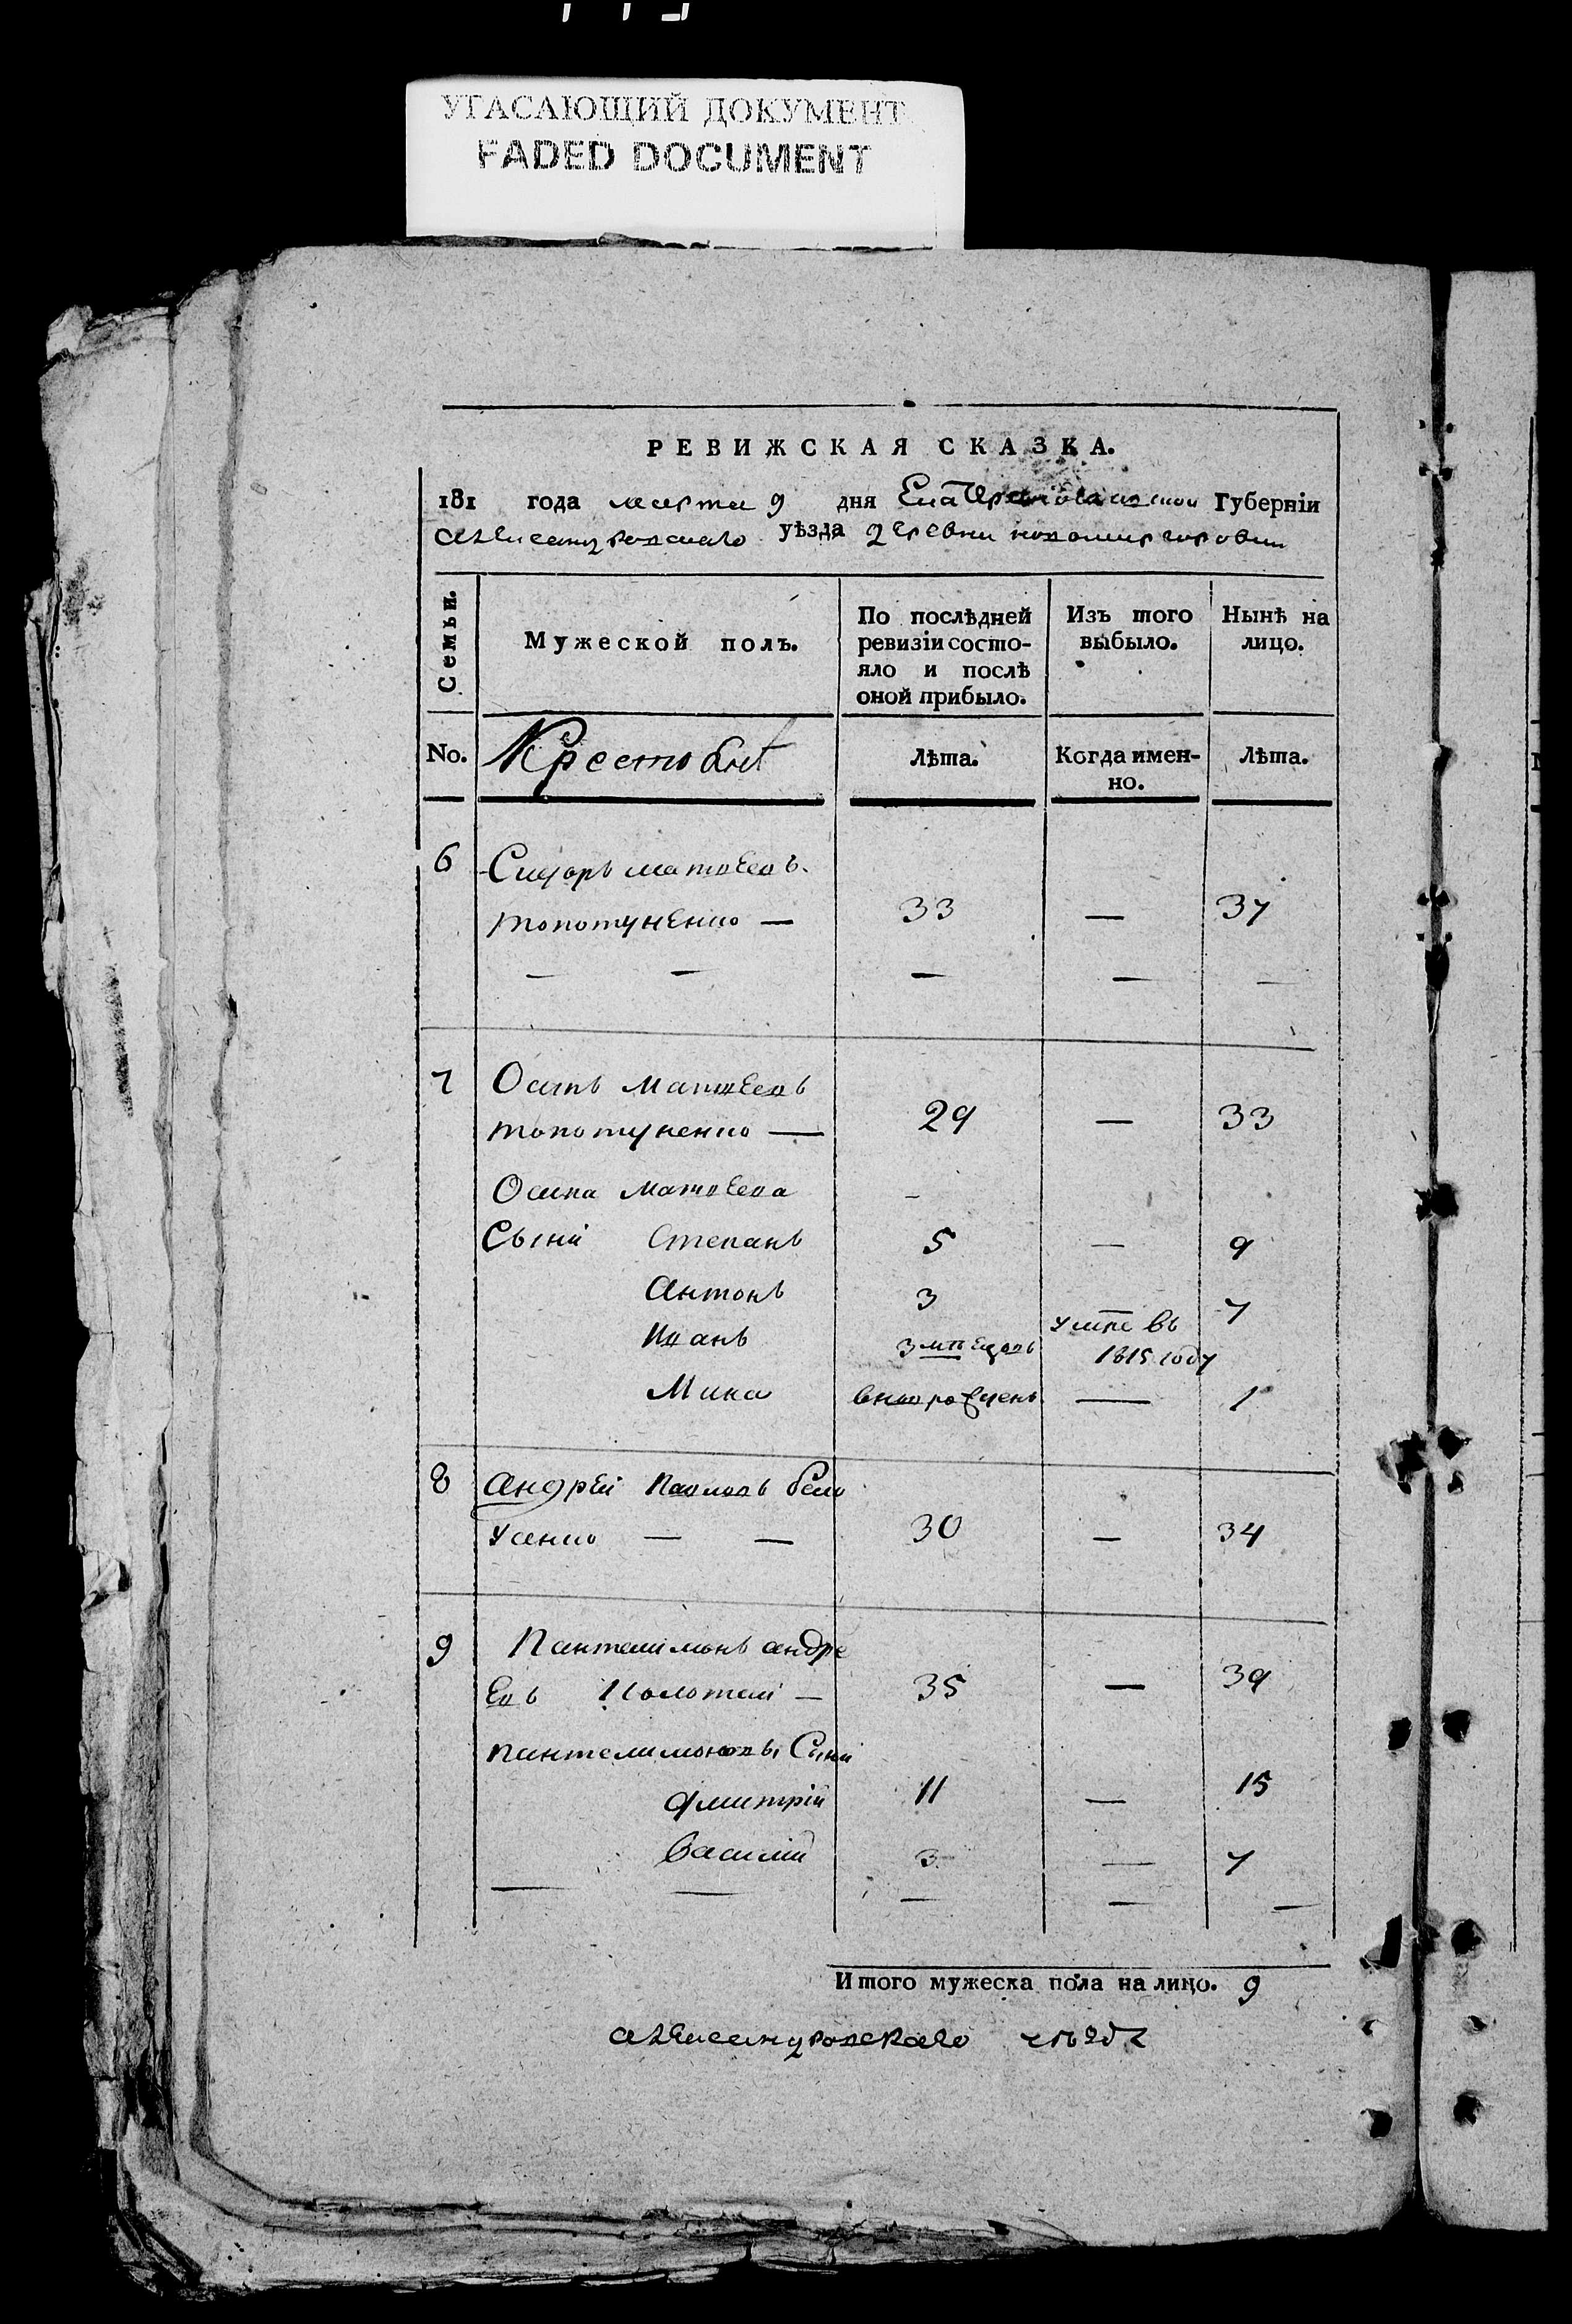 УГАСАЮЩИЙ ДОКУМЕНТ
FADED DOCUMENT
РЕВИЖСКАЯ СКАЗКА.
181 года марта 9 дня Екатеринославской Губерніи
александровскаго уѣзда деревни
Семьи.
Мужеской полъ.
По послѣдней ревизіи состояло и послѣ оной прибыло.
Изъ того выбыло.
Нынѣ на лицо.
No.
Лѣта.
Когда именно.
Лѣта.
6 Сидоръ матвеевъ
топотуненко — 33 — 37
— — — — —
7 Осипъ Матвеевъ
топотуненко — 29 — 33
Осипа матвеева -
Сыни Степанъ 5 — 9
Антонъ 3 7
Иванъ 3 умре въ 1815 году
Мина вновро — 1
8 андрей павловъ бело
усенко — — 30 — 34
9 Пантелимонъ андре
евъ — 35 — 39
пантелимоновы Сыни
дмитрій 11 — 15
Василій 3 — 7
— — — — —
Итого мужеска пола на лицо. 9
александровскаго